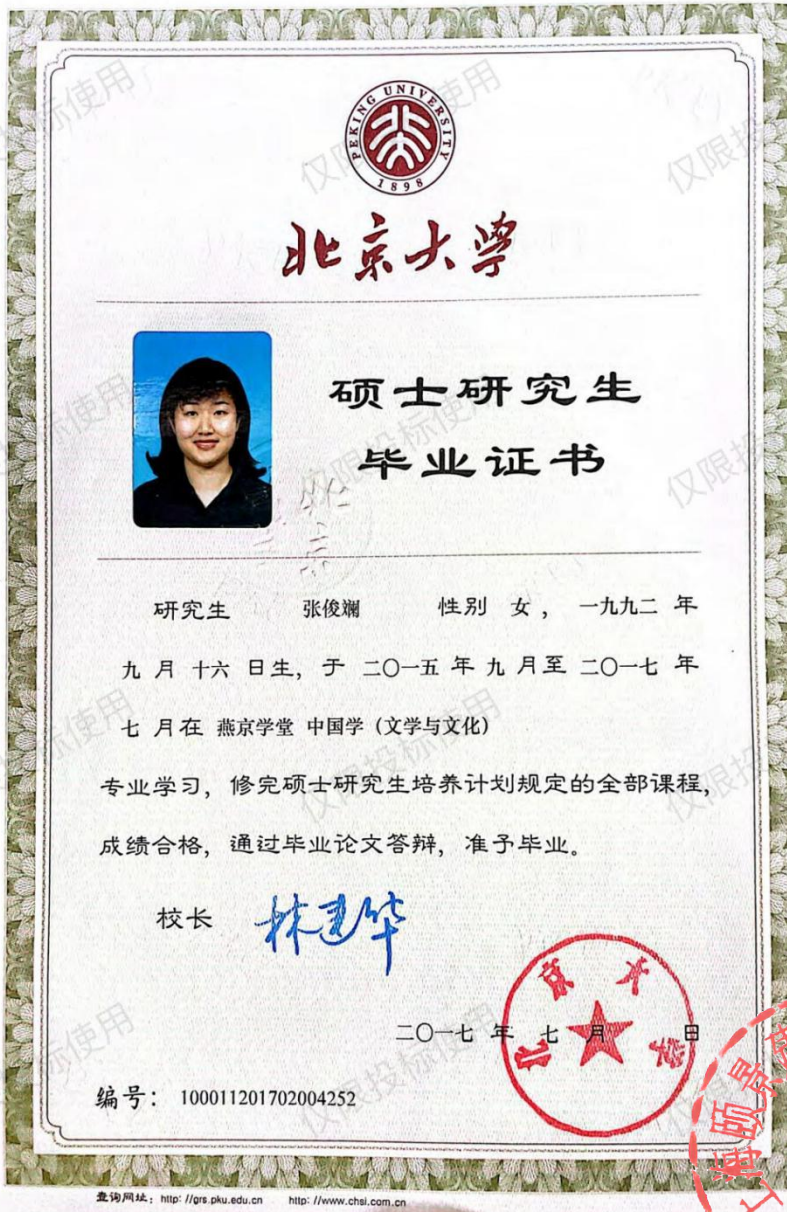 PEKING UNIVERSITY
1898
北京大学
硕士研究生
毕业证书
研究生 张俊斓 性别 女， 一九九二 年
九 月 十六 日生，于 二〇一五 年 九 月至 二〇一七 年
七 月在 燕京学堂 中国学（文学与文化）
专业学习，修完硕士研究生培养计划规定的全部课程，
成绩合格，通过毕业论文答辩，准予毕业。
校长 林建华
北京大学
二〇一七 年 七 月 日
编号： 100011201702004252
查询网址：http://grs.pku.edu.cn http://www.chsi.com.cn
仅限投标使用
上海颐景